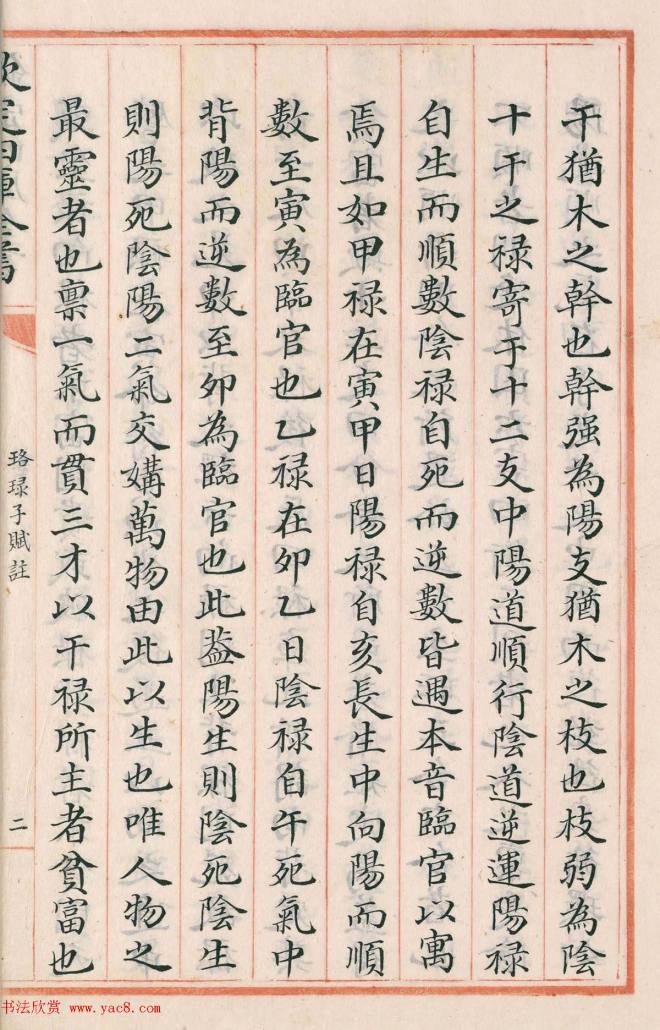 干猶木之幹也幹强為陽支猶木之枝也枝弱為陰
十干之禄寄于十二支中陽道順行陰道逆運陽禄
自生而順數陰禄自死而逆數皆遇本音臨官以寓
焉且如甲禄在寅甲日陽禄自亥長生中向陽而順
數至寅為臨官也乙禄在夘乙日陰禄自午死氣中
背陽而逆數至夘為臨官也此葢陽生則陰死陰生
則陽死陰陽二氣交媾萬物由此以生也唯人物之
最靈者也禀一氣而貫三才以干禄所主者貧富也
欽定四庫全書
珞琭子賦註
二
书法欣赏 www.yac8.com